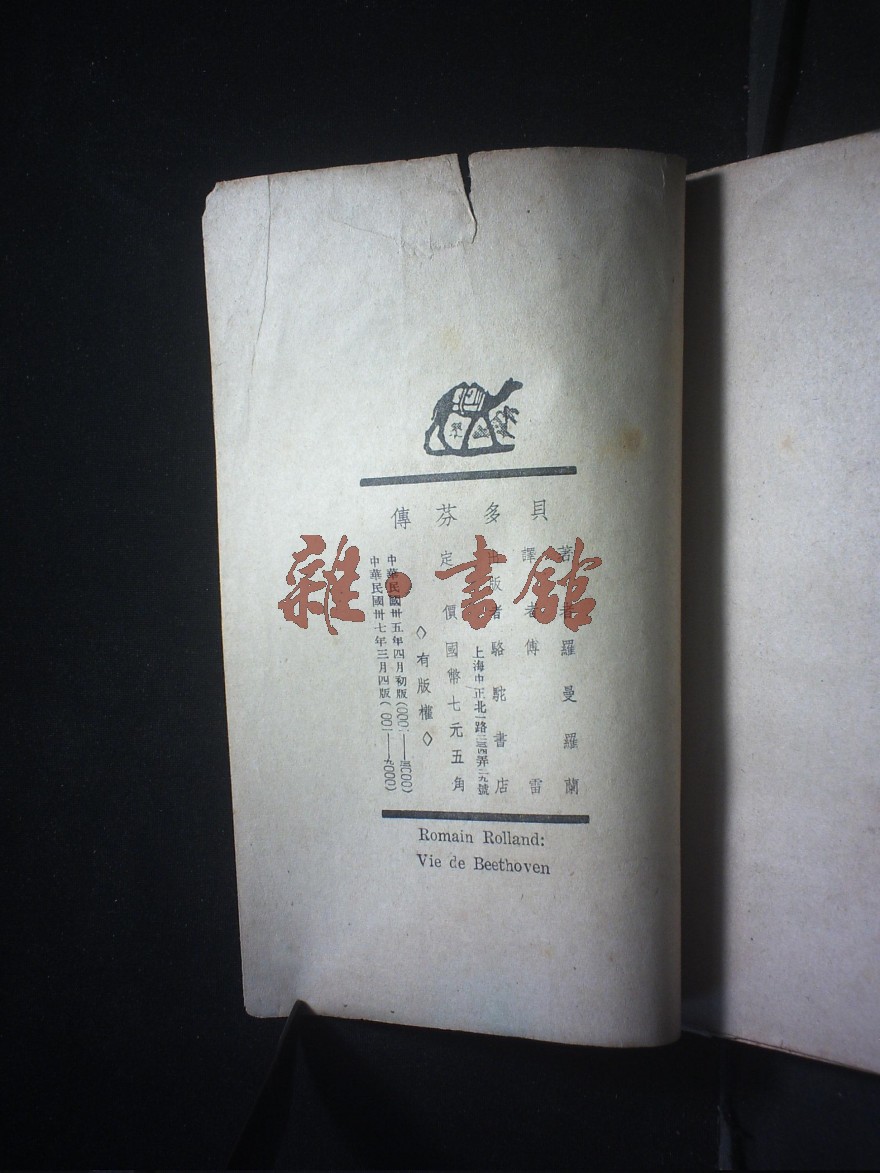 貝多芬傳
著者 羅曼羅蘭
譯者 傅雷
出版者 駱駝書店
上海中正北一路
定價 國幣七元五角
◇有版權◇
中華民國卅五年四月初版
中華民國卅七年三月四版
Romain Rolland:
Vie de Beethoven
雜·書館